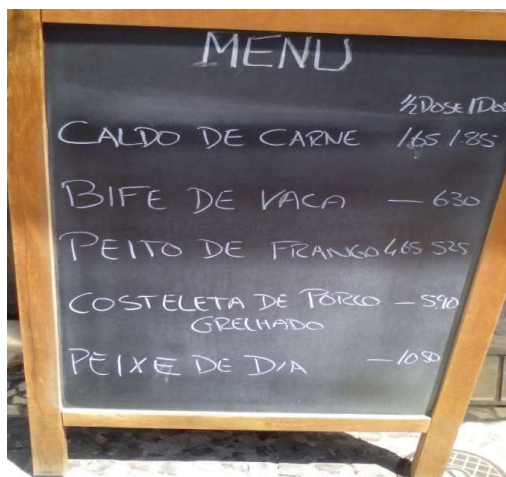 MENU
½ DOSE 1 DOS
CALDO DE CARNE 1.65 1.85
BIFE DE VACA — 630
PEITO DE FRANGO 4,65 525
COSTELETA DE PORCO — 5.90
GRELHADO
PEIXE DE DIA — 1050